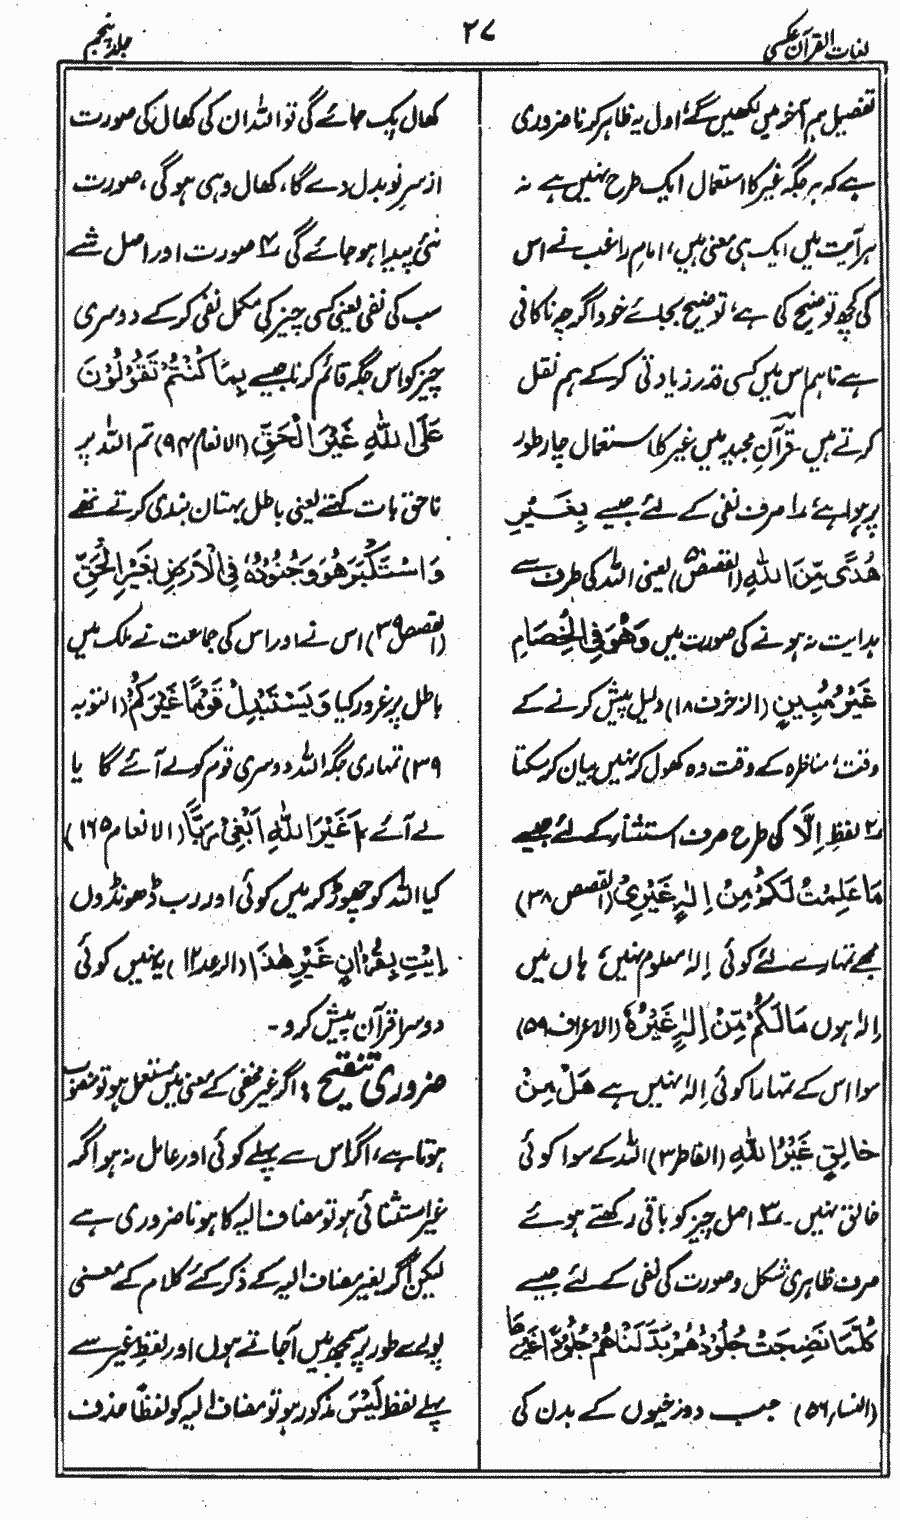 لغات القرآن عکسی
۲۷
جلد پنجم
تفصیل ہم آخر میں لکھیں گے، اول یہ ظاہر کرنا ضروری
ہے کہ ہر جگہ غیر کا استعمال ایک طرح نہیں ہے نہ
ہر آیت میں ایک ہی معنی ہیں، امام راغب نے اس
کی کچھ توضیح کی ہے، توضیح بجائے خود اگرچہ ناکافی
ہے تاہم اس میں کسی قدر زیادتی کر کے ہم نقل
کرتے ہیں۔ قرآن مجید میں غیر کا استعمال چار طور
پر ہوا ہے، ۱؎ صرف نفی کے لئے جیسے بِغَیْرِ
هُدًى مِّنَ اللهِ (القصص ۵) یعنی اللہ کی طرف سے
ہدایت نہ ہونے کی صورت میں وَهُوَ فِی الْخِصَامِ
غَیْرُ مُبِیْنٍ (الزخرف ۱۸) دلیل پیش کرنے کے
وقت، مناظرہ کے وقت وہ کھول کر نہیں بیان کر سکتا
۲؎ لفظ اِلَّا کی طرح صرف استثنار کے لئے جیسے
مَا عَلِمْتُ لَكُمْ مِنْ اِلٰهٍ غَیْرِیْ (القصص ۳۸)
مجھے تمہارے لئے کوئی اِلٰہ معلوم نہیں، ہاں میں
اِلٰہ ہوں مَا لَكُمْ مِّنْ اِلٰهٍ غَیْرُهٗ (الاعراف ۵۹)
سوا اس کے تمہارا کوئی اِلٰہ نہیں ہے هَلْ مِنْ
خَالِقٍ غَیْرُ اللهِ (الفاطر ۳) اللہ کے سوا کوئی
خالق نہیں۔ ۳؎ اصل چیز کو باقی رکھتے ہوئے
صرف ظاہری شکل و صورت کی نفی کے لئے جیسے
كُلَّمَا نَضِجَتْ جُلُوْدُهُمْ بَدَّلْنَاهُمْ جُلُوْدًا غَیْرَهَا
(النسار ۵۶) جب دوزخیوں کے بدن کی
کھال پک جائے گی تو اللہ ان کی کھال کی صورت
از سر نو بدل دے گا، کھال وہی ہوگی، صورت
نئی پیدا ہو جائے گی ۴؎ صورت اور اصل شے
سب کی نفی یعنی کسی چیز کی مکمل نفی کر کے دوسری
چیز کو اس جگہ قائم کرنا جیسے بِمَا كُنْتُمْ تَقُوْلُوْنَ
عَلَى اللهِ غَیْرَ الْحَقِّ (الانعام ۹۴) تم اللہ پر
ناحق بات کہتے یعنی باطل بہتان بندی کرتے تھے
وَاسْتَكْبَرَ هُوَ وَجُنُوْدُهٗ فِی الْاَرْضِ بِغَیْرِ الْحَقِّ
(القصص ۳۹) اس نے اور اس کی جماعت نے ملک میں
باطل پر غرور کیا وَیَسْتَبْدِلْ قَوْمًا غَیْرَكُمْ (التوبہ
۳۹) تمہاری جگہ اللہ دوسری قوم کو لے آئے گا یا
لے آئے اَغَیْرَ اللهِ اَبْغِیْ رَبًّا (الانعام ۱۶۵)
کیا اللہ کو چھوڑ کر میں کوئی اور رب ڈھونڈوں
اِیْتِ بِقُرْاٰنٍ غَیْرِ هٰذَا (الرعد ۱۲) یہ نہیں کوئی
دوسرا قرآن پیش کرو۔
ضروری تنقیح ؛ اگر غیر محض نفی کے معنی میں مستعمل ہو تو منصوب
ہوتا ہے، اگر اس سے پہلے کوئی اور عامل نہ ہو اگر
غیر استثنائی ہو تو مضاف الیہ کا ہونا ضروری ہے
لیکن اگر بغیر مضاف الیہ کے ذکر کئے کلام کے معنی
پورے طور پر سمجھ میں آجاتے ہوں اور لفظ غیر سے
پہلے لفظ لَیْسَ مذکور ہو تو مضاف الیہ کو لفظاً حذف